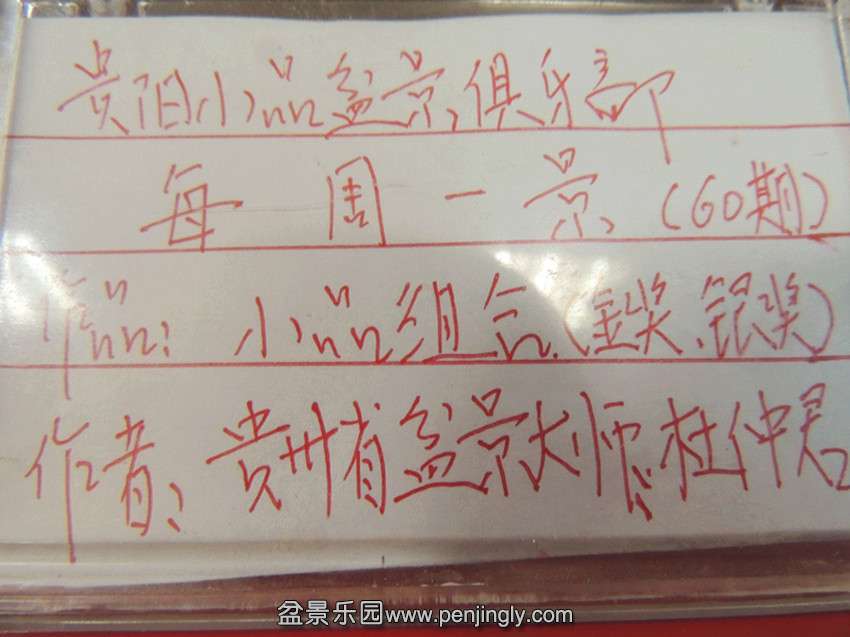 贵阳小品盆景俱乐部
每周一景(60期)
作品:小品组合(金奖、银奖)
作者:贵州省盆景大师:杜仲君
盆景乐园www.penjingly.com